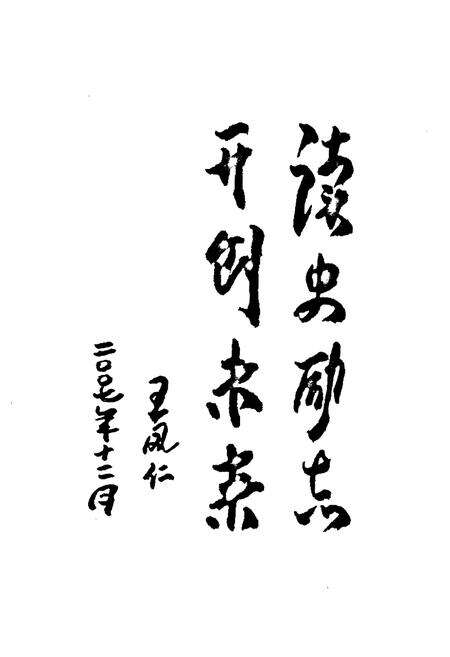 读史励志
开创未来
王凤仁
二〇〇七年十二月